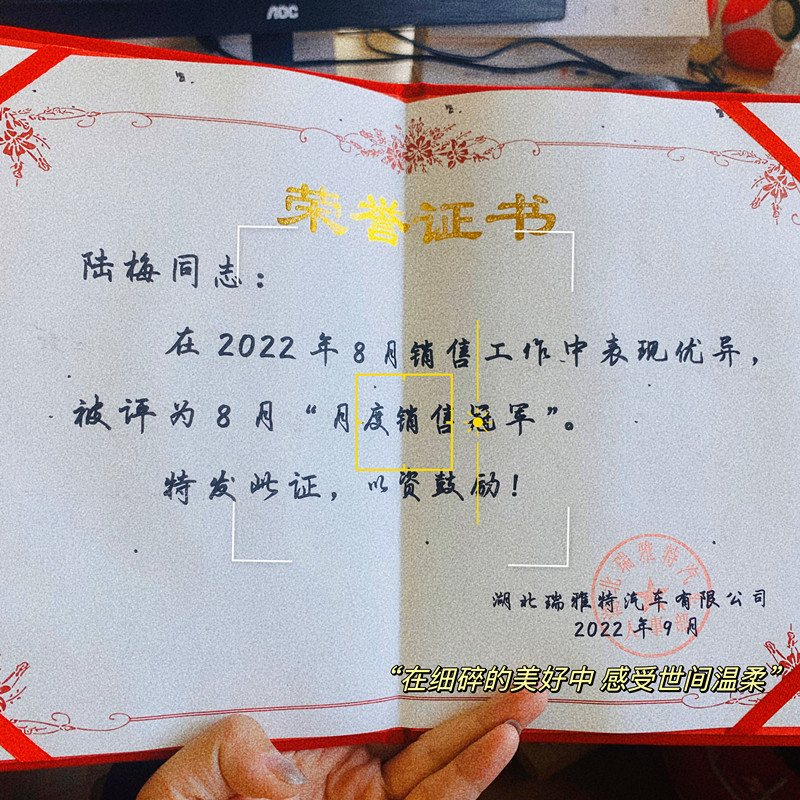 AOC
荣誉证书
陆梅同志：
在2022年8月销售工作中表现优异，
被评为8月“月度销售冠军”。
特发此证，以资鼓励！
湖北瑞雅特汽车有限公司
2022年9月
“在细碎的美好中 感受世间温柔”